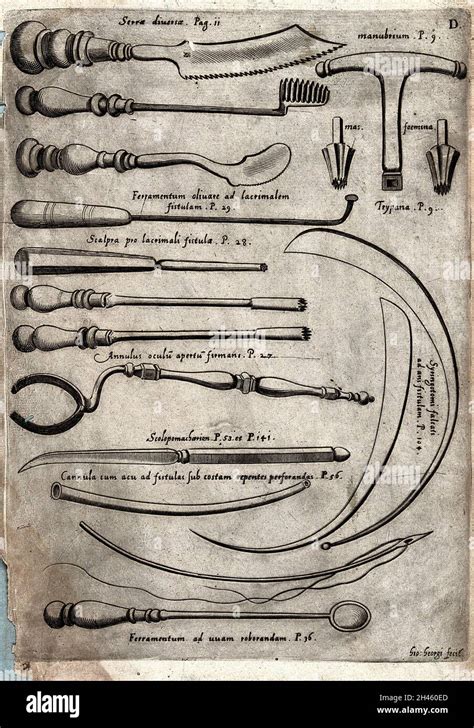 Serræ diversæ. Pag. 11
D.
manubrium P. 9.
mas. foemina.
Trypana. P. 9.
Ferramentum olivare ad lacrimalem
fistulam. P. 29.
Scalpra pro lacrimali fistulæ. P. 28.
Annulus oculū apertū firmans. P. 27.
Syringotomi falcati
ad ani fistulam. P. 104.
Scolopomachærion. P. 53. et P. 141.
Cannula cum acu ad fistulas sub costam repentes perforandas. P. 56.
Ferramentum ad uvam roborandam. P. 36.
Gio: Georgi fecit
alamy
Image ID: 2H460ED
www.alamy.com